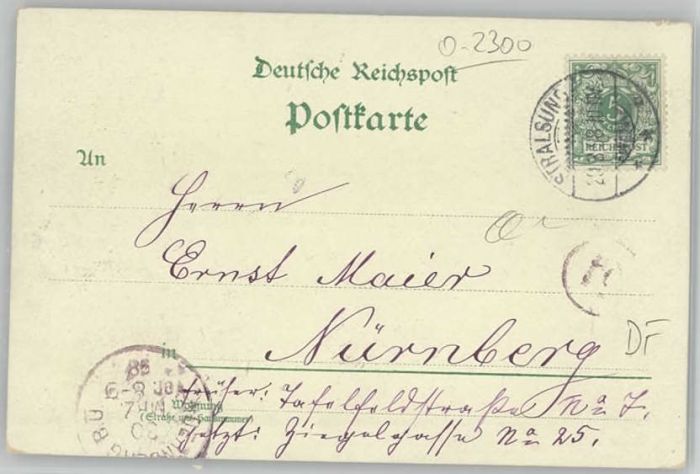 0-2300
Deutsche Reichspost
Postkarte
REICHSPOST
STRALSUND
An
Herrn
Ernst Maier
in Nürnberg
DF
Früher: Tafelfeldstraße No 7.
Wohnung
(Straße und Hausnummer)
Jetzt: Ziegelgasse No 25.